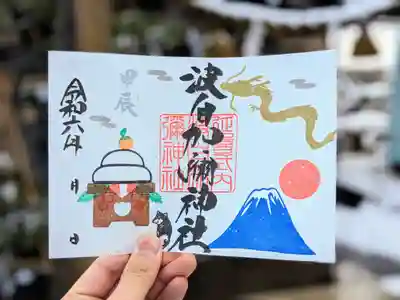 波自加彌神社
延喜式内
彌神社
甲辰
令和六年 月 日